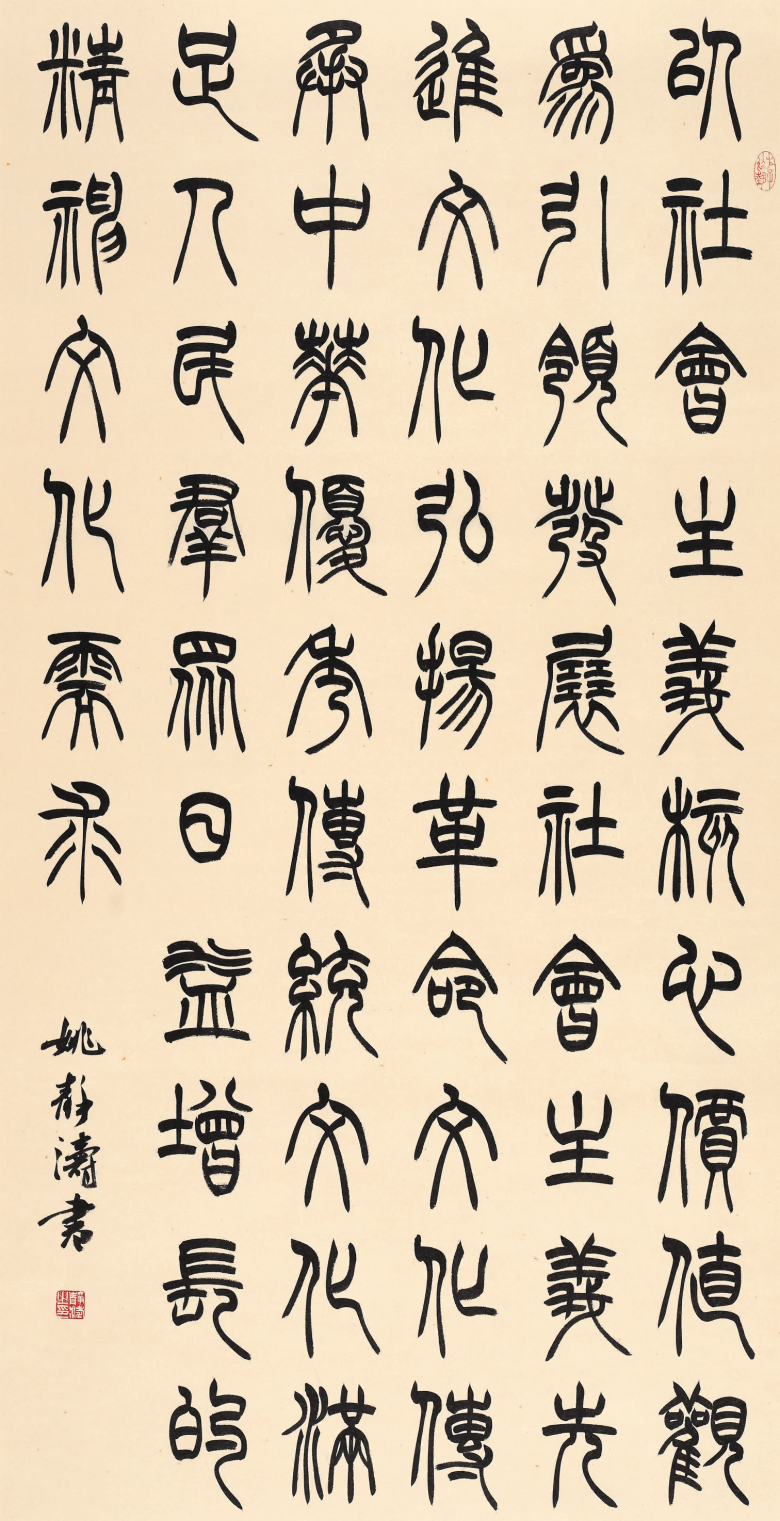 以社會主義核心價值觀
為引領發展社會主義先
進文化弘揚革命文化傳
承中華優秀傳統文化滿
足人民羣眾日益增長的
精神文化需求
姚靜濤書